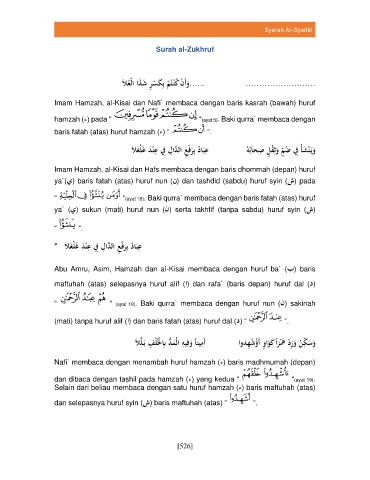 Syarah Al-Syatibi
Surah al-Zukhruf
وَأَنْ كُنْتُمْ بِكَسْرٍ شَذَا الْعُلَا ...... ..........................
Imam Hamzah, al-Kisai dan Nafi` membaca dengan baris kasrah (bawah) huruf
hamzah (ء) pada “ إِن كُنتُمْ قَوْمًا مُّسْرِفِينَ ”(ayat 5). Baki qurra` membaca dengan
baris fatah (atas) huruf hamzah (ء) “ أَن كُنتُمْ ”.
وَيَنْشَأُ فِي ضَمٍّ وَثِقْلٍ صِحَابُهُ عِبَادُ بِرَفْعِ الدَّالِ فِي عِنْدَ غَلْغَلَا
Imam Hamzah, al-Kisai dan Hafs membaca dengan baris dhommah (depan) huruf
ya`(ي) baris fatah (atas) huruf nun (ن) dan tashdid (sabdu) huruf syin (ش) pada
“ أَوَمَن يُنَشَّؤُا۟ فِى ٱلْحِلْيَةِ ”(ayat 18). Baki qurra` membaca dengan baris fatah (atas) huruf
ya` (ي) sukun (mati) huruf nun (ن) serta takhfif (tanpa sabdu) huruf syin (ش)
“ يَنشَؤُا۟ ”.
* عِبَادُ بِرَفْعِ الدَّالِ فِي عِنْدَ غَلْغَلَا
Abu Amru, Asim, Hamzah dan al-Kisai membaca dengan huruf ba` (ب) baris
maftuhah (atas) selepasnya huruf alif (ا) dan rafa` (baris depan) huruf dal (د)
“ هُمْ عِبَـٰدُ ٱلرَّحْمَـٰنِ ” (ayat 19). Baki qurra` membaca dengan huruf nun (ن) sakinah
(mati) tanpa huruf alif (ا) dan baris fatah (atas) huruf dal (د) “ عِندَ ٱلرَّحْمَـٰنِ ”.
وَسَكِّنْ وَزِدْ هَمْزًا كَوَاوٍ أَؤُشْهِدُوا أَمِينًا وَفِيهِ الْمَدُّ بِالْخُلْفِ بَلَّلَا
Nafi` membaca dengan menambah huruf hamzah (ء) baris madhmumah (depan)
dan dibaca dengan tashil pada hamzah (ء) yang kedua “ أَءُشْهِدُوا۟ خَلْقَهُمْ ”(ayat 19).
Selain dari beliau membaca dengan satu huruf hamzah (ء) baris maftuhah (atas)
dan selepasnya huruf syin (ش) baris maftuhah (atas) “ أَشَهِدُوا۟ ”.
[526]